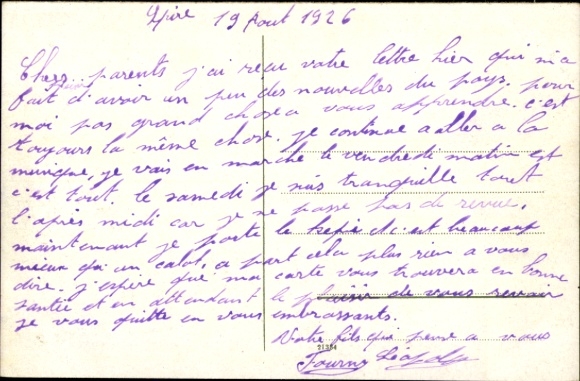 19 Aout 1926
Chers parents j'ai recu votre lettre hier qui m'a
fait plaisir d'avoir un peu des nouvelles du pays. pour
moi pas grand chose a vous apprendre. c'est
toujours la même chose. je continue a aller a la
musique, je vais en marche le vendredi matin et
c'est tout. le samedi je suis tranquille tout
l'après midi car je ne passe pas de revue.
maintenant je porte le kepi et c'est beaucoup
mieux qu'un calot. a part cela plus rien a vous
dire. j'espère que ma carte vous trouvera en bonne
santée et en attendant le plaisir de vous revoir
je vous quitte en vous embrassants.
Votre fils qui pense a vous
21354